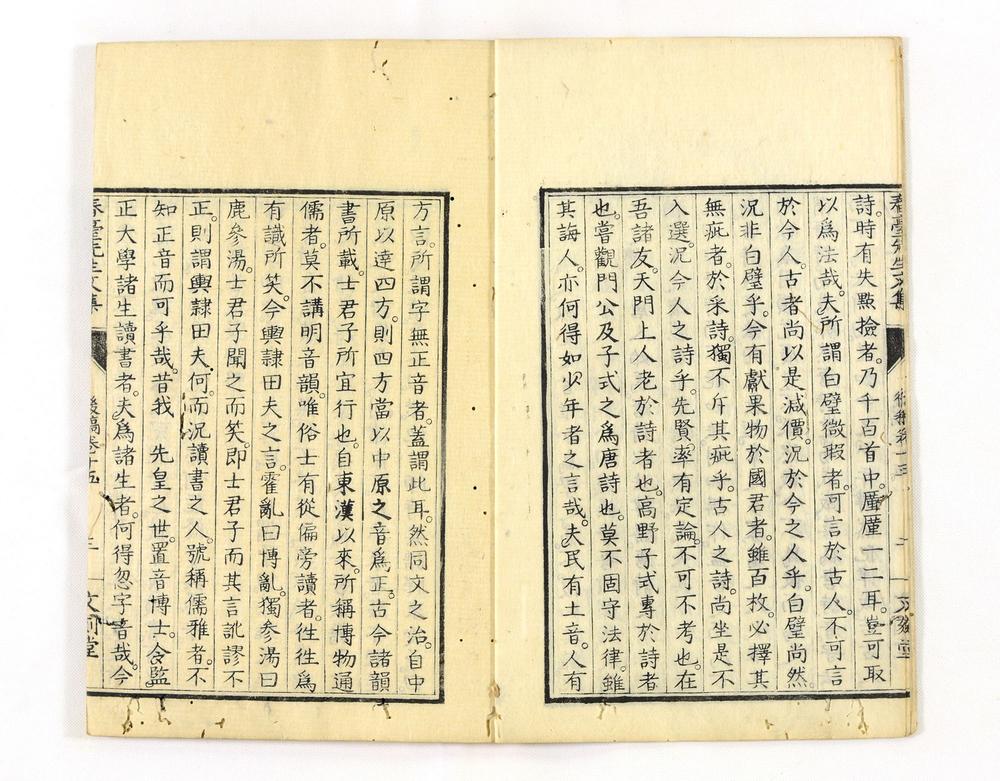 詩。時有失點撿者。乃千百首中。厪厪一二耳。豈可取
以爲法哉。夫所謂白璧微瑕者。可言於古人。不可言
於今人。古者尚以是減價。況於今之人乎。白璧尚然
況非白璧乎。今有獻果物於國君者。雖百枚。必擇其
無疵者。於采詩。獨不斥其疵乎。古人之詩。尚坐是不
入選。況今人之詩乎。先賢率有定論。不可不考也。在
吾諸友。天門上人老於詩者也。高野子式專於詩者
也。嘗觀門公及子式之爲唐詩也。莫不固守法律。雖
其誨人。亦何得如少年者之言哉。夫民有土音。人有
春臺先生文集
後稿卷十五
二
文
堂
方言。所謂字無正音者。蓋謂此耳。然同文之治。自中
原以達四方。則四方當以中原之音爲正。古今諸韻
書所載。士君子所宜行也。自東漢以來。所稱博物通
儒者。莫不講明音韻。唯俗士有從偏旁讀者。徃徃爲
有識所笑。今輿隷田夫之言。霍亂曰博亂。獨參湯曰
鹿參湯。士君子聞之而笑。即士君子而其言訛謬不
正。則謂輿隷田夫何。而況讀書之人。號稱儒雅者。不
知正音而可乎哉。昔我 先皇之世。置音博士。令監
正大學諸生讀書者。夫爲諸生者。何得忽字音哉。今
春臺先生文集
後稿卷十五
三
文
堂